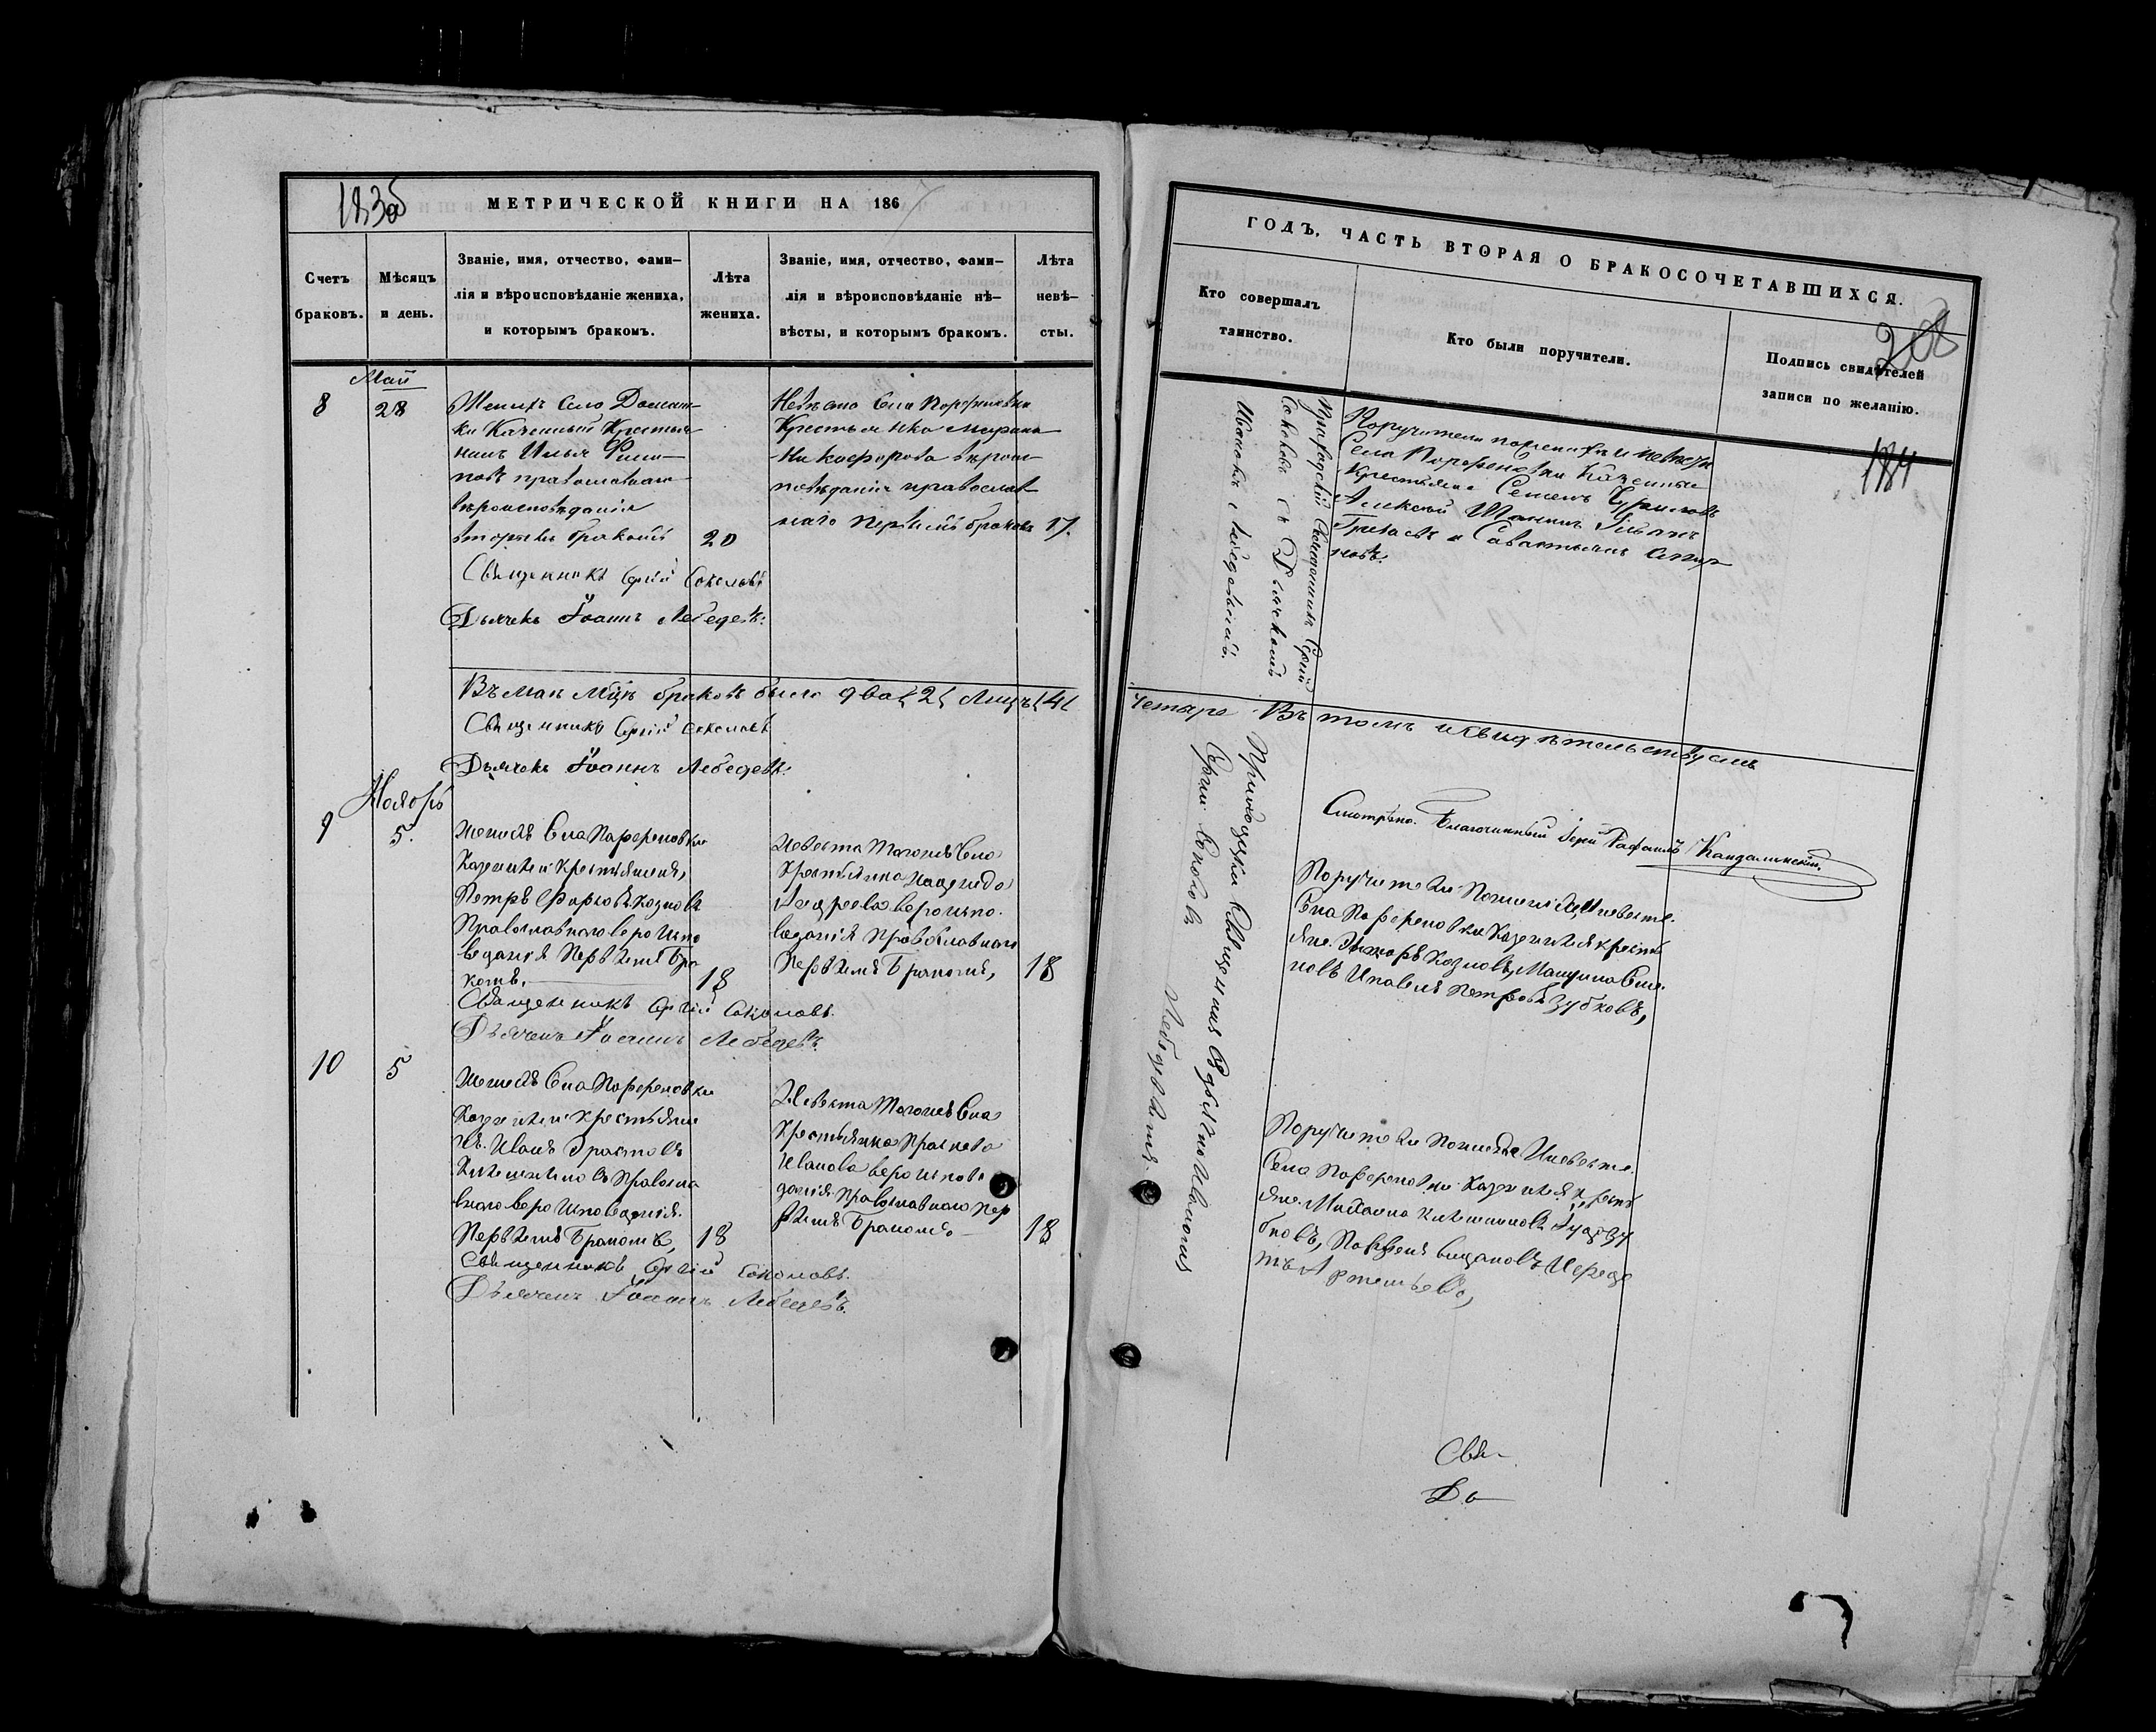 183об
МЕТРИЧЕСКОЙ КНИГИ НА 186
Счетъ браковъ.
Мѣсяцъ и день.
Званіе, имя, отчество, фами-
лія и вѣроисповѣданіе жениха,
и которымъ бракомъ.
Лѣта жениха.
Званіе, имя, отчество, фами-
лія и вѣроисповѣданіе нѣ-
вѣсты, и которымъ бракомъ.
Лѣта невѣ-
сты.
Май
8
28
Женихъ Села
ки Казенный Крестья
нинъ Илья Фили
повъ православнаго
вѣроисповѣданія
вторымъ бракомъ
20
Невѣста Села Порфеновки
Крестьянка Марина
Никифорова вѣроис
повѣданія православ
наго первымъ бракомъ
17.
Священникъ Сергій Соколовъ
Дьячекъ Іоаннъ Лебедевъ.
Въ маѣ мцѣ браковъ было два (2) лицъ (4)
Священникъ Сергій Соколовъ
Дьячекъ Іоаннъ Лебедевъ.
Ноябрь
9
5.
Женихъ Села Парфеновки
Казенный Крестьянинъ,
Петръ Козловъ
Православнаго вероиспо
веданія Первымъ Бра
комъ.
18
Невеста тогожъ Села
Крестьянка Надежда
Андреева вероиспо.
веданія Православнаго
Первымъ Бракомъ,
18
Священникъ Сергій Соколовъ.
Дьячекъ Іоаннъ Лебедевъ.
10
5
Женихъ Села Парфеновки
Казенный Крестьяни
нъ. Иванъ
Православ
наго вероисповеданія.
Первымъ Бракомъ,
18
Невеста тогожъ Села
Крестьянка Прасковья
Иванова вероиспове
данія Православнаго Пер
вымъ Бракомъ
18
Священникъ Сергій Соколовъ.
Дьячекъ Іоаннъ Лебедевъ.
ГОДЪ. ЧАСТЬ ВТОРАЯ О БРАКОСОЧЕТАВШИХСЯ.
208
Кто совершалъ
таинство.
Кто были поручители.
Подпись свидѣтелей
записи по желанію.
184
Приходскій Священникъ Сергій
Соколовъ съ Дьячкомъ
Иваномъ Лебедевымъ.
Поручители по женихѣ и невѣстѣ
Села Порфеновки Казенные
Крестьяне Семенъ
Алексѣй Иванъ
и Савастьянъ
новъ.
четыре Въ томъ и свидѣтельствуемъ
Смотрѣно. Благочинный Іерей Рафаилъ Кандалинскій.
Приходскій Священникъ
Сергій Соколовъ
Лебедевымъ.
Поручители По женихе И невесте.
Села Парфеновки Казенныя кресть
яне. Козловъ,
новъ И Павелъ Петровъ Зубковъ,
Поручители По женихе И невесте.
Села Парфеновки Казенныя кресть
яне. Михаила
бковъ,
Артемьевъ,
Свя-
Дь